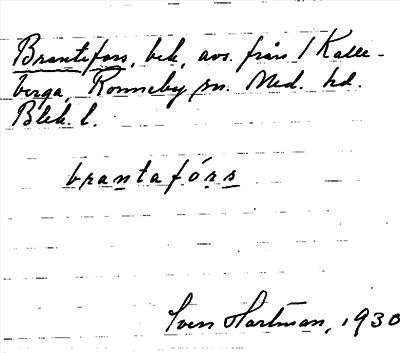 Brantefors, beb, avs. från 1 Kalle-
berga, Ronneby sn. Med. hd.
Blek. l.
brantafórs
Sven Hartman, 1930